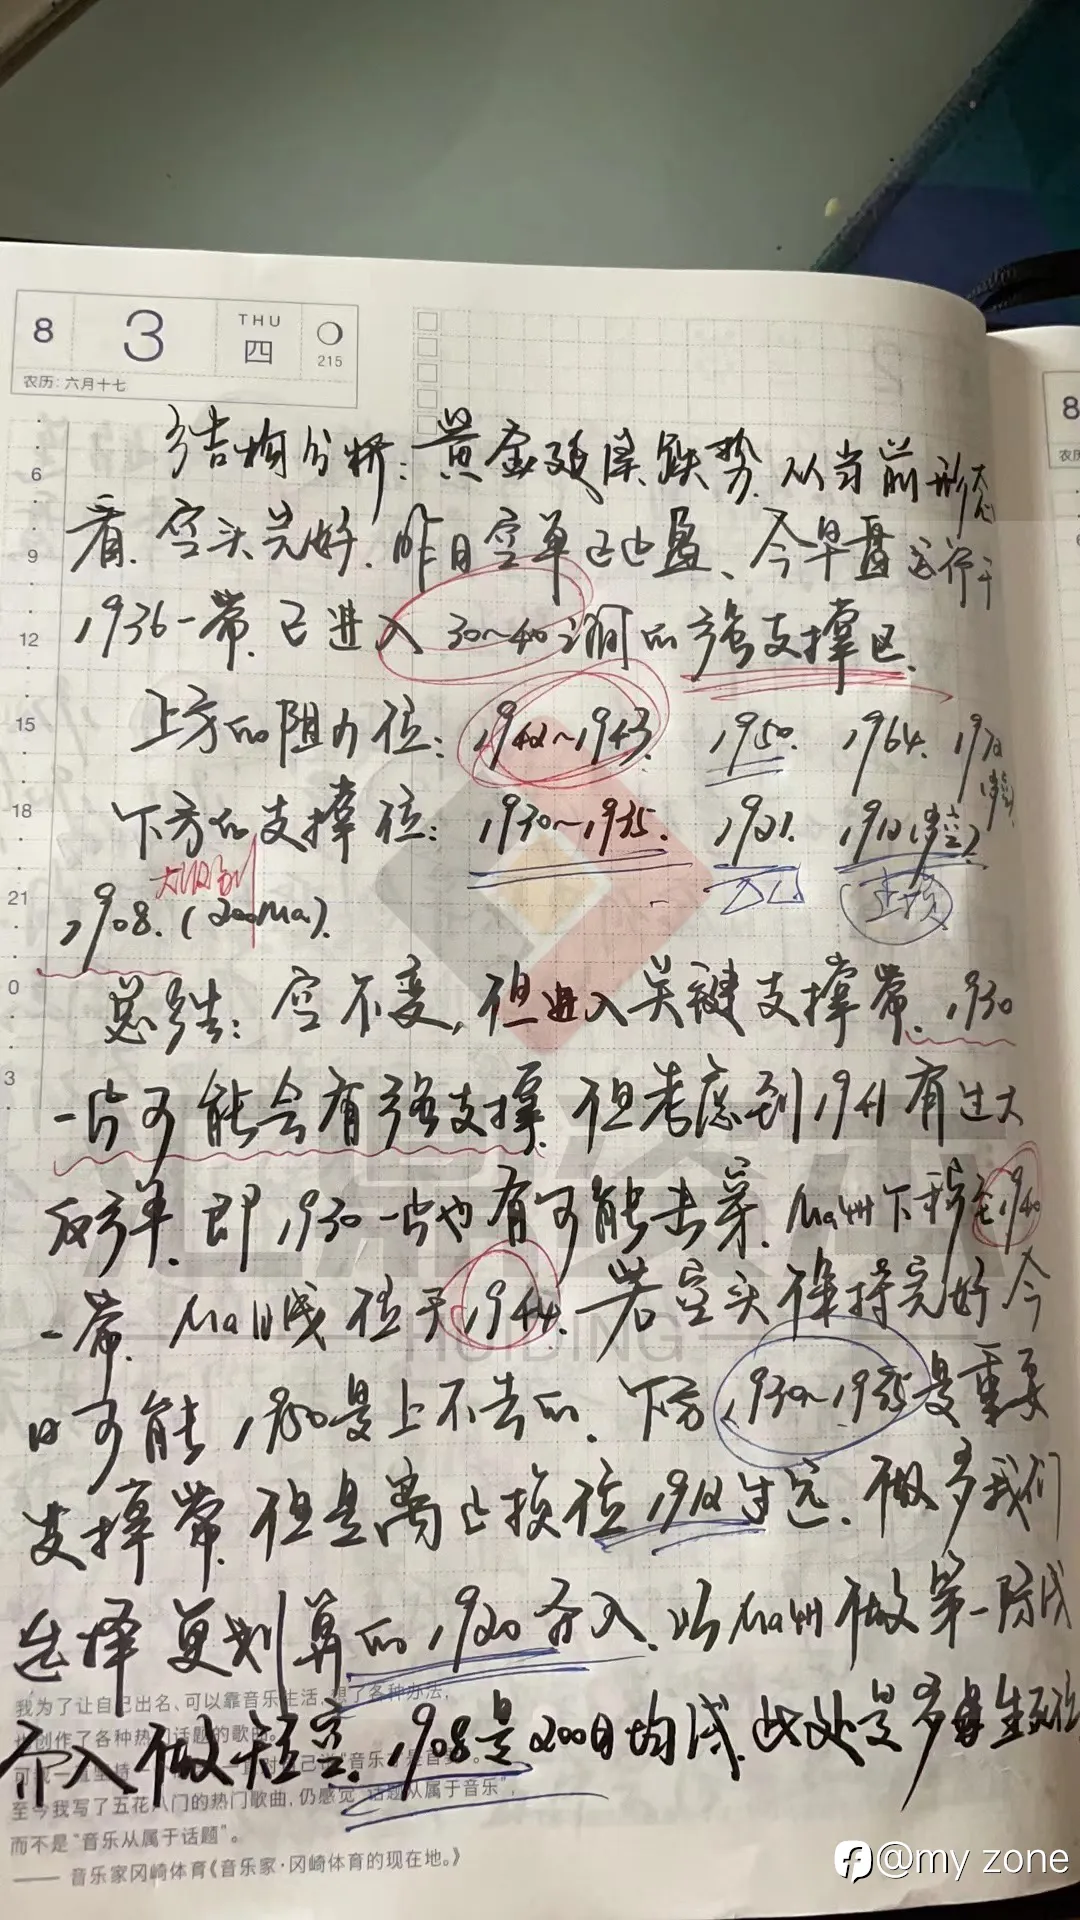 8 3 THU 四 215
农历：六月十七
8
农历
6
9
12
15
18
21
0
3
结构分析：黄金延续跌势，从当前形态
看，空头完好，昨日空单已出盈、今早盘运行于
1936一带，已进入30~40之间的强支撑区。
上方的阻力位：1942~1943. 1950. 1964. 1972
下方的支撑位：1930~1935. 1921. 1912(多空)
止损
1908.(200Ma).
总结：空不变，但进入关键支撑带，1930
一片可能会有强支撑，但考虑到1941有过大
反弹，即1930一片也有可能击穿，Ma4H下移至1940
一带，Ma1H线位于1944，若空头保持完好今
日可能1950是上不去的，下方1930~1935是重要
支撑带，但是离止损位1912过远，做多我们
选择更划算的1920介入，以Ma4H做第一防线
介入做短空，1908是200日均线，此处是多単生死位
我为了让自己出名、可以靠音乐生活，想了各种办法，
也创作了各种热门话题的歌曲。
至今我写了五花八门的热门歌曲，仍感觉“话题从属于音乐”，
而不是“音乐从属于话题”。
—— 音乐家冈崎体育《音乐家·冈崎体育的现在地。》
HUIDING
@my zone